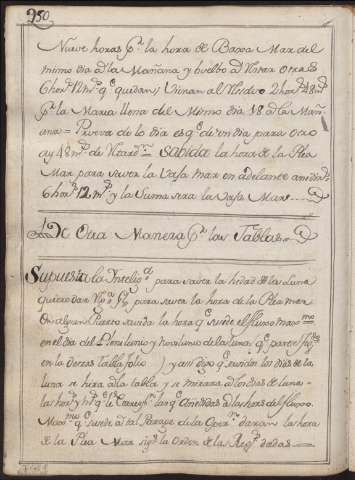 250
Nueve horas p.ª la hora de Baxa Mar del
mimo dia a la Mañana y buelbo a Restar otras
6 hor.s 12 m.s q.e quedan y vienen al Verdad.o 2 hor.s 48 m.s
p.ª la Marea llena del Mimo dia 18 a las Mañ-
ana = Prueva de lo dio es q.e de un dia para otro
ay 48 m.s de Retardo = Sabida la hora de la Plea
Mar para saver la Vaja mar en adelante añadir
6 hor.s 12 m.s y la Suma sera la Vaja Mar
De Otra Manera p.r las Tablas
Supuesta la Inteliª para saver la hedad de la Luna
quiero dar Reg.ª para saver la hora de la Plea mar
en algun Puerto savida la hora q.e sucede el fluxo maxmo
en el dia del Plenilunio y Novilunio de la luna
en la Tabla folio ) y assi digo q.e savidos los dias de la
luna se hira a la tabla y se mirara a los dias de luna
las hor.s y m.s q.e le Corresp.n las q.e Añadidas a las horas del fluxo
Maxmo q.e sucede a tal Parage de la Oper.n daran la hora
de la Plea Mar sig.do la Orden de las Reg.s dadas